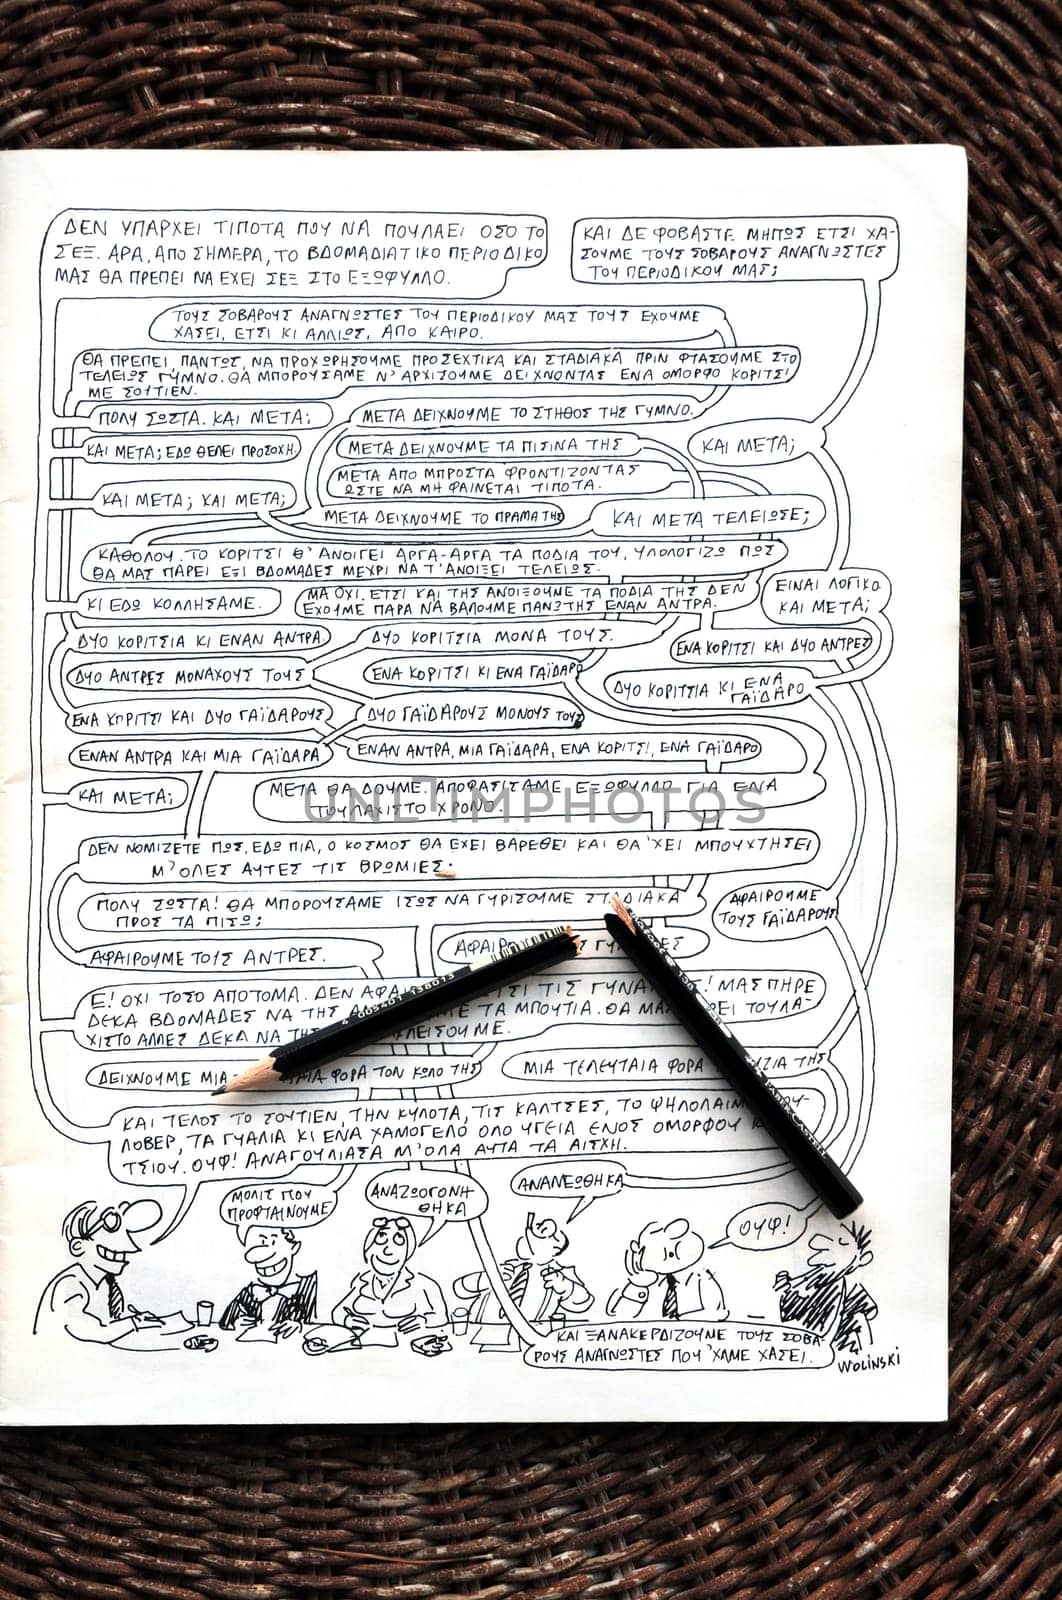 ΔΕΝ ΥΠΑΡΧΕΙ ΤΙΠΟΤΑ ΠΟΥ ΝΑ ΠΟΥΛΑΕΙ ΟΣΟ ΤΟ
ΣΕΞ. ΑΡΑ, ΑΠΟ ΣΗΜΕΡΑ, ΤΟ ΒΔΟΜΑΔΙΑΤΙΚΟ ΠΕΡΙΟΔΙΚΟ
ΜΑΣ ΘΑ ΠΡΕΠΕΙ ΝΑ ΕΧΕΙ ΣΕΞ ΣΤΟ ΕΞΩΦΥΛΛΟ.
ΚΑΙ ΔΕ ΦΟΒΑΣΤΕ ΜΗΠΩΣ ΕΤΣΙ ΧΑ-
ΣΟΥΜΕ ΤΟΥΣ ΣΟΒΑΡΟΥΣ ΑΝΑΓΝΩΣΤΕΣ
ΤΟΥ ΠΕΡΙΟΔΙΚΟΥ ΜΑΣ;
ΤΟΥΣ ΣΟΒΑΡΟΥΣ ΑΝΑΓΝΩΣΤΕΣ ΤΟΥ ΠΕΡΙΟΔΙΚΟΥ ΜΑΣ ΤΟΥΣ ΕΧΟΥΜΕ
ΧΑΣΕΙ, ΕΤΣΙ ΚΙ ΑΛΛΙΩΣ, ΑΠΟ ΚΑΙΡΟ.
ΘΑ ΠΡΕΠΕΙ, ΠΑΝΤΩΣ, ΝΑ ΠΡΟΧΩΡΗΣΟΥΜΕ ΠΡΟΣΕΧΤΙΚΑ ΚΑΙ ΣΤΑΔΙΑΚΑ ΠΡΙΝ ΦΤΑΣΟΥΜΕ ΣΤΟ
ΤΕΛΕΙΩΣ ΓΥΜΝΟ. ΘΑ ΜΠΟΡΟΥΣΑΜΕ Ν' ΑΡΧΙΣΟΥΜΕ ΔΕΙΧΝΟΝΤΑΣ ΕΝΑ ΟΜΟΡΦΟ ΚΟΡΙΤΣΙ
ΜΕ ΣΟΥΤΙΕΝ.
ΠΟΛΥ ΣΩΣΤΑ. ΚΑΙ ΜΕΤΑ;
ΜΕΤΑ ΔΕΙΧΝΟΥΜΕ ΤΟ ΣΤΗΘΟΣ ΤΗΣ ΓΥΜΝΟ.
ΚΑΙ ΜΕΤΑ;
ΚΑΙ ΜΕΤΑ; ΕΔΩ ΘΕΛΕΙ ΠΡΟΣΟΧΗ.
ΜΕΤΑ ΔΕΙΧΝΟΥΜΕ ΤΑ ΠΙΣΙΝΑ ΤΗΣ
ΜΕΤΑ ΑΠΟ ΜΠΡΟΣΤΑ ΦΡΟΝΤΙΖΟΝΤΑΣ
ΩΣΤΕ ΝΑ ΜΗ ΦΑΙΝΕΤΑΙ ΤΙΠΟΤΑ.
ΚΑΙ ΜΕΤΑ; ΚΑΙ ΜΕΤΑ;
ΜΕΤΑ ΔΕΙΧΝΟΥΜΕ ΤΟ ΠΡΑΜΑ ΤΗΣ
ΚΑΙ ΜΕΤΑ ΤΕΛΕΙΩΣΕ;
ΚΑΘΟΛΟΥ. ΤΟ ΚΟΡΙΤΣΙ Θ' ΑΝΟΙΓΕΙ ΑΡΓΑ-ΑΡΓΑ ΤΑ ΠΟΔΙΑ ΤΟΥ, ΥΠΟΛΟΓΙΖΩ ΠΩΣ
ΘΑ ΜΑΣ ΠΑΡΕΙ ΕΞΙ ΒΔΟΜΑΔΕΣ ΜΕΧΡΙ ΝΑ Τ' ΑΝΟΙΞΕΙ ΤΕΛΕΙΩΣ.
ΕΙΝΑΙ ΛΟΓΙΚΟ
ΚΑΙ ΜΕΤΑ;
ΚΙ ΕΔΩ ΚΟΛΛΗΣΑΜΕ.
ΜΑ ΟΧΙ. ΕΤΣΙ ΚΑΙ ΤΗΣ ΑΝΟΙΞΟΥΜΕ ΤΑ ΠΟΔΙΑ ΤΗΣ ΔΕΝ
ΕΧΟΥΜΕ ΠΑΡΑ ΝΑ ΒΑΛΟΥΜΕ ΠΑΝΩ ΤΗΣ ΕΝΑΝ ΑΝΤΡΑ.
ΔΥΟ ΚΟΡΙΤΣΙΑ ΚΙ ΕΝΑΝ ΑΝΤΡΑ
ΔΥΟ ΚΟΡΙΤΣΙΑ ΜΟΝΑ ΤΟΥΣ.
ΕΝΑ ΚΟΡΙΤΣΙ ΚΑΙ ΔΥΟ ΑΝΤΡΕΣ
ΔΥΟ ΑΝΤΡΕΣ ΜΟΝΑΧΟΥΣ ΤΟΥΣ
ΕΝΑ ΚΟΡΙΤΣΙ ΚΙ ΕΝΑ ΓΑΪΔΑΡΟ
ΔΥΟ ΚΟΡΙΤΣΙΑ ΚΙ ΕΝΑ
ΓΑΪΔΑΡΟ
ΕΝΑ ΚΟΡΙΤΣΙ ΚΑΙ ΔΥΟ ΓΑΪΔΑΡΟΥΣ
ΔΥΟ ΓΑΪΔΑΡΟΥΣ ΜΟΝΟΥΣ ΤΟΥΣ
ΕΝΑΝ ΑΝΤΡΑ ΚΑΙ ΜΙΑ ΓΑΪΔΑΡΑ
ΕΝΑΝ ΑΝΤΡΑ, ΜΙΑ ΓΑΪΔΑΡΑ, ΕΝΑ ΚΟΡΙΤΣΙ, ΕΝΑ ΓΑΪΔΑΡΟ
ΚΑΙ ΜΕΤΑ;
ΜΕΤΑ ΘΑ ΔΟΥΜΕ. ΑΠΟΦΑΣΙΣΑΜΕ ΕΞΩΦΥΛΛΟ ΓΙΑ ΕΝΑ
ΤΟΥΛΑΧΙΣΤΟ ΧΡΟΝΟ.
UNLIMPHOTOS
ΔΕΝ ΝΟΜΙΖΕΤΕ ΠΩΣ, ΕΔΩ ΠΙΑ, Ο ΚΟΣΜΟΣ ΘΑ ΕΧΕΙ ΒΑΡΕΘΕΙ ΚΑΙ ΘΑ 'ΧΕΙ ΜΠΟΥΧΤΗΣΕΙ
Μ' ΟΛΕΣ ΑΥΤΕΣ ΤΙΣ ΒΡΩΜΙΕΣ;
ΠΟΛΥ ΣΩΣΤΑ! ΘΑ ΜΠΟΡΟΥΣΑΜΕ ΙΣΩΣ ΝΑ ΓΥΡΙΣΟΥΜΕ ΣΤΑΔΙΑΚΑ
ΠΡΟΣ ΤΑ ΠΙΣΩ;
ΑΦΑΙΡΟΥΜΕ
ΤΟΥΣ ΓΑΪΔΑΡΟΥΣ
ΑΦΑΙΡΟΥΜΕ ΤΟΥΣ ΑΝΤΡΕΣ.
Ε! ΟΧΙ ΤΟΣΟ ΑΠΟΤΟΜΑ. ΔΕΝ ΤΙΣ ! ΜΑΣ ΠΗΡΕ
ΔΕΚΑ ΒΔΟΜΑΔΕΣ ΝΑ ΤΗΣ ΤΑ ΜΠΟΥΤΙΑ. ΘΑ ΤΟΥΛΑ-
ΧΙΣΤΟ ΑΛΛΕΣ ΔΕΚΑ ΝΑ
ΔΕΙΧΝΟΥΜΕ ΜΙΑ ΦΟΡΑ ΤΟΝ ΚΩΛΟ ΤΗΣ
ΜΙΑ ΤΕΛΕΥΤΑΙΑ ΦΟΡΑ ΤΗΣ
ΚΑΙ ΤΕΛΟΣ ΤΟ ΣΟΥΤΙΕΝ, ΤΗΝ ΚΥΛΟΤΑ, ΤΙΣ ΚΑΛΤΣΕΣ, ΤΟ
ΛΟΒΕΡ, ΤΑ ΓΥΑΛΙΑ ΚΙ ΕΝΑ ΧΑΜΟΓΕΛΟ ΟΛΟ ΥΓΕΙΑ ΕΝΟΣ ΟΜΟΡΦΟΥ
ΤΣΙΟΥ. ΟΥΦ! ΑΝΑΓΟΥΛΙΑΣΑ Μ' ΟΛΑ ΑΥΤΑ ΤΑ ΑΙΣΧΗ.
ΜΟΛΙΣ ΠΟΥ
ΠΡΟΦΤΑΙΝΟΥΜΕ
ΑΝΑΖΩΟΓΟΝΗ
ΘΗΚΑ
ΑΝΑΝΕΩΘΗΚΑ
ΟΥΦ!
ΚΑΙ ΞΑΝΑΚΕΡΔΙΖΟΥΜΕ ΤΟΥΣ ΣΟΒΑ-
ΡΟΥΣ ΑΝΑΓΝΩΣΤΕΣ ΠΟΥ 'ΧΑΜΕ ΧΑΣΕΙ.
WOLINSKI